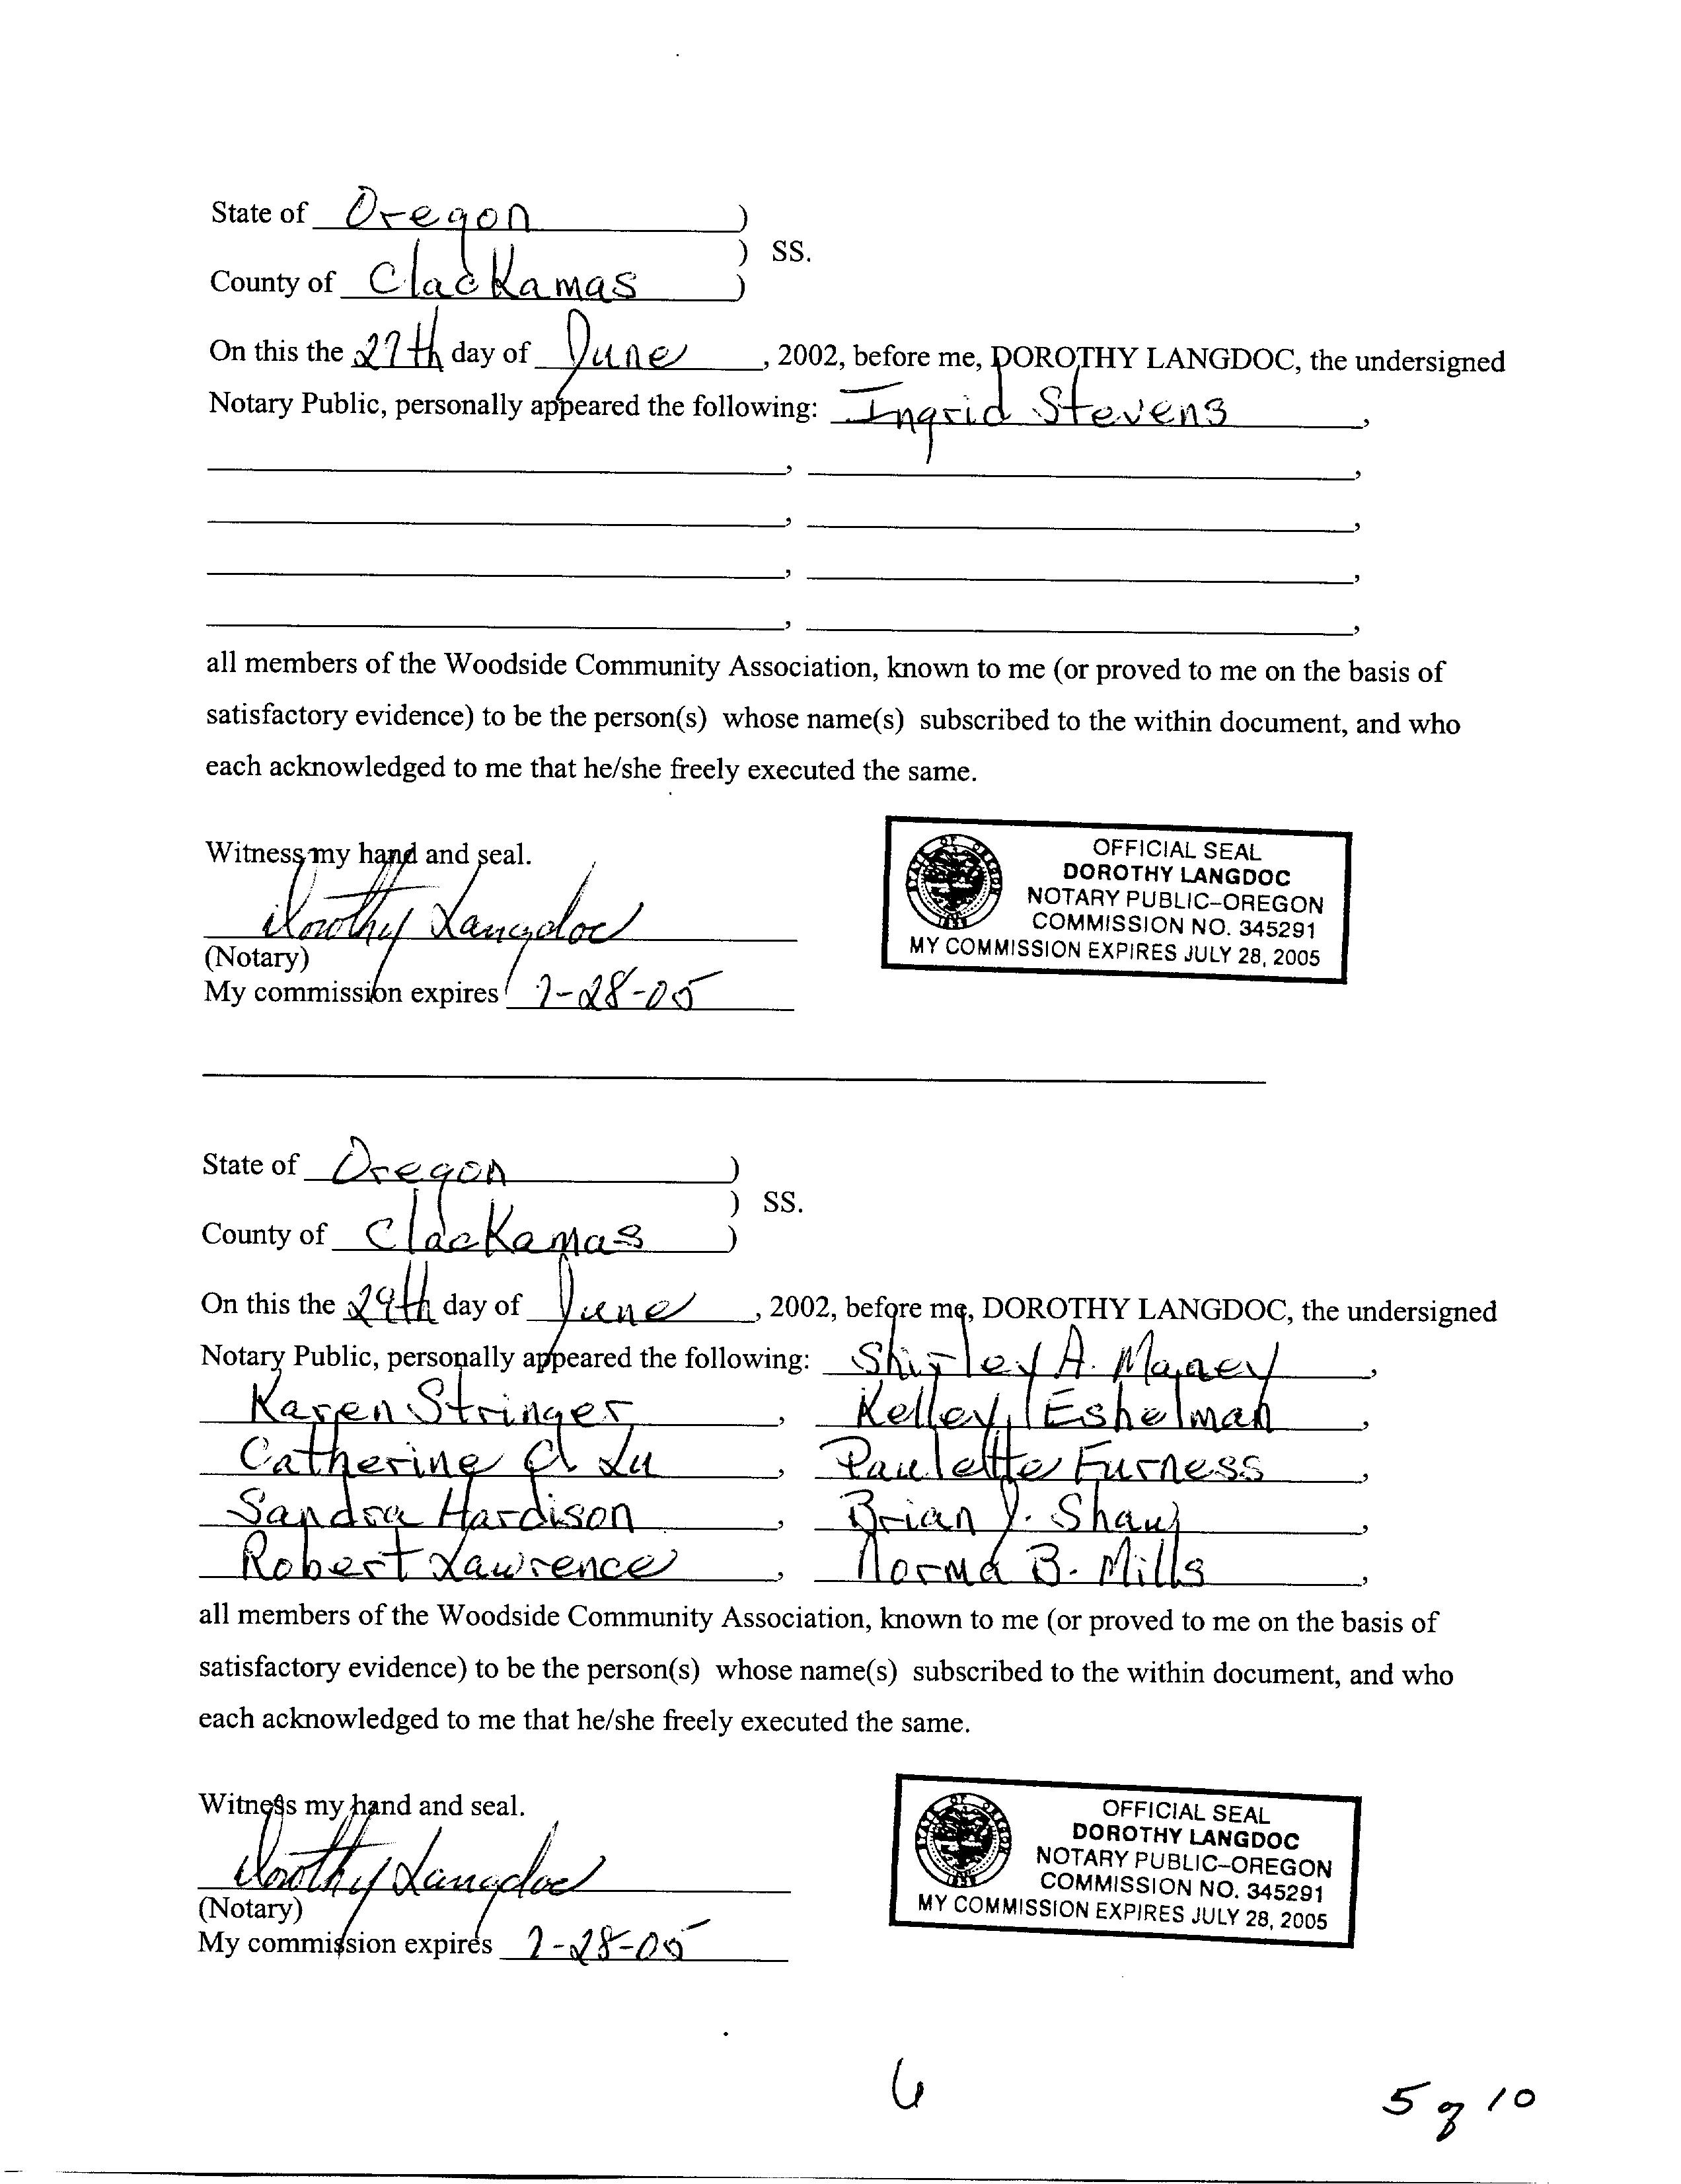 State of Oregon )
) SS.
County of Clackamas )
On this the 27th day of June, 2002, before me, DOROTHY LANGDOC, the undersigned
Notary Public, personally appeared the following: Ingrid Stevens,
, ,
, ,
, ,
, ,
all members of the Woodside Community Association, known to me (or proved to me on the basis of
satisfactory evidence) to be the person(s) whose name(s) subscribed to the within document, and who
each acknowledged to me that he/she freely executed the same.
Witness my hand and seal.
Dorothy Langdoc
(Notary)
My commission expires 7-28-05
STATE OF OREGON
1859
OFFICIAL SEAL
DOROTHY LANGDOC
NOTARY PUBLIC-OREGON
COMMISSION NO. 345291
MY COMMISSION EXPIRES JULY 28, 2005
State of Oregon )
) SS.
County of Clackamas )
On this the 29th day of June, 2002, before me, DOROTHY LANGDOC, the undersigned
Notary Public, personally appeared the following: Shirley A.
Karen Stringer, Kelley Eshelman,
Catherine Lu, Paulette Furness,
Sandra Hardison, Brian J. Shaw,
Robert Lawrence, Norma B. Mills,
all members of the Woodside Community Association, known to me (or proved to me on the basis of
satisfactory evidence) to be the person(s) whose name(s) subscribed to the within document, and who
each acknowledged to me that he/she freely executed the same.
Witness my hand and seal.
Dorothy Langdoc
(Notary)
My commission expires 7-28-05
STATE OF OREGON
1859
OFFICIAL SEAL
DOROTHY LANGDOC
NOTARY PUBLIC-OREGON
COMMISSION NO. 345291
MY COMMISSION EXPIRES JULY 28, 2005
6
5 of 10